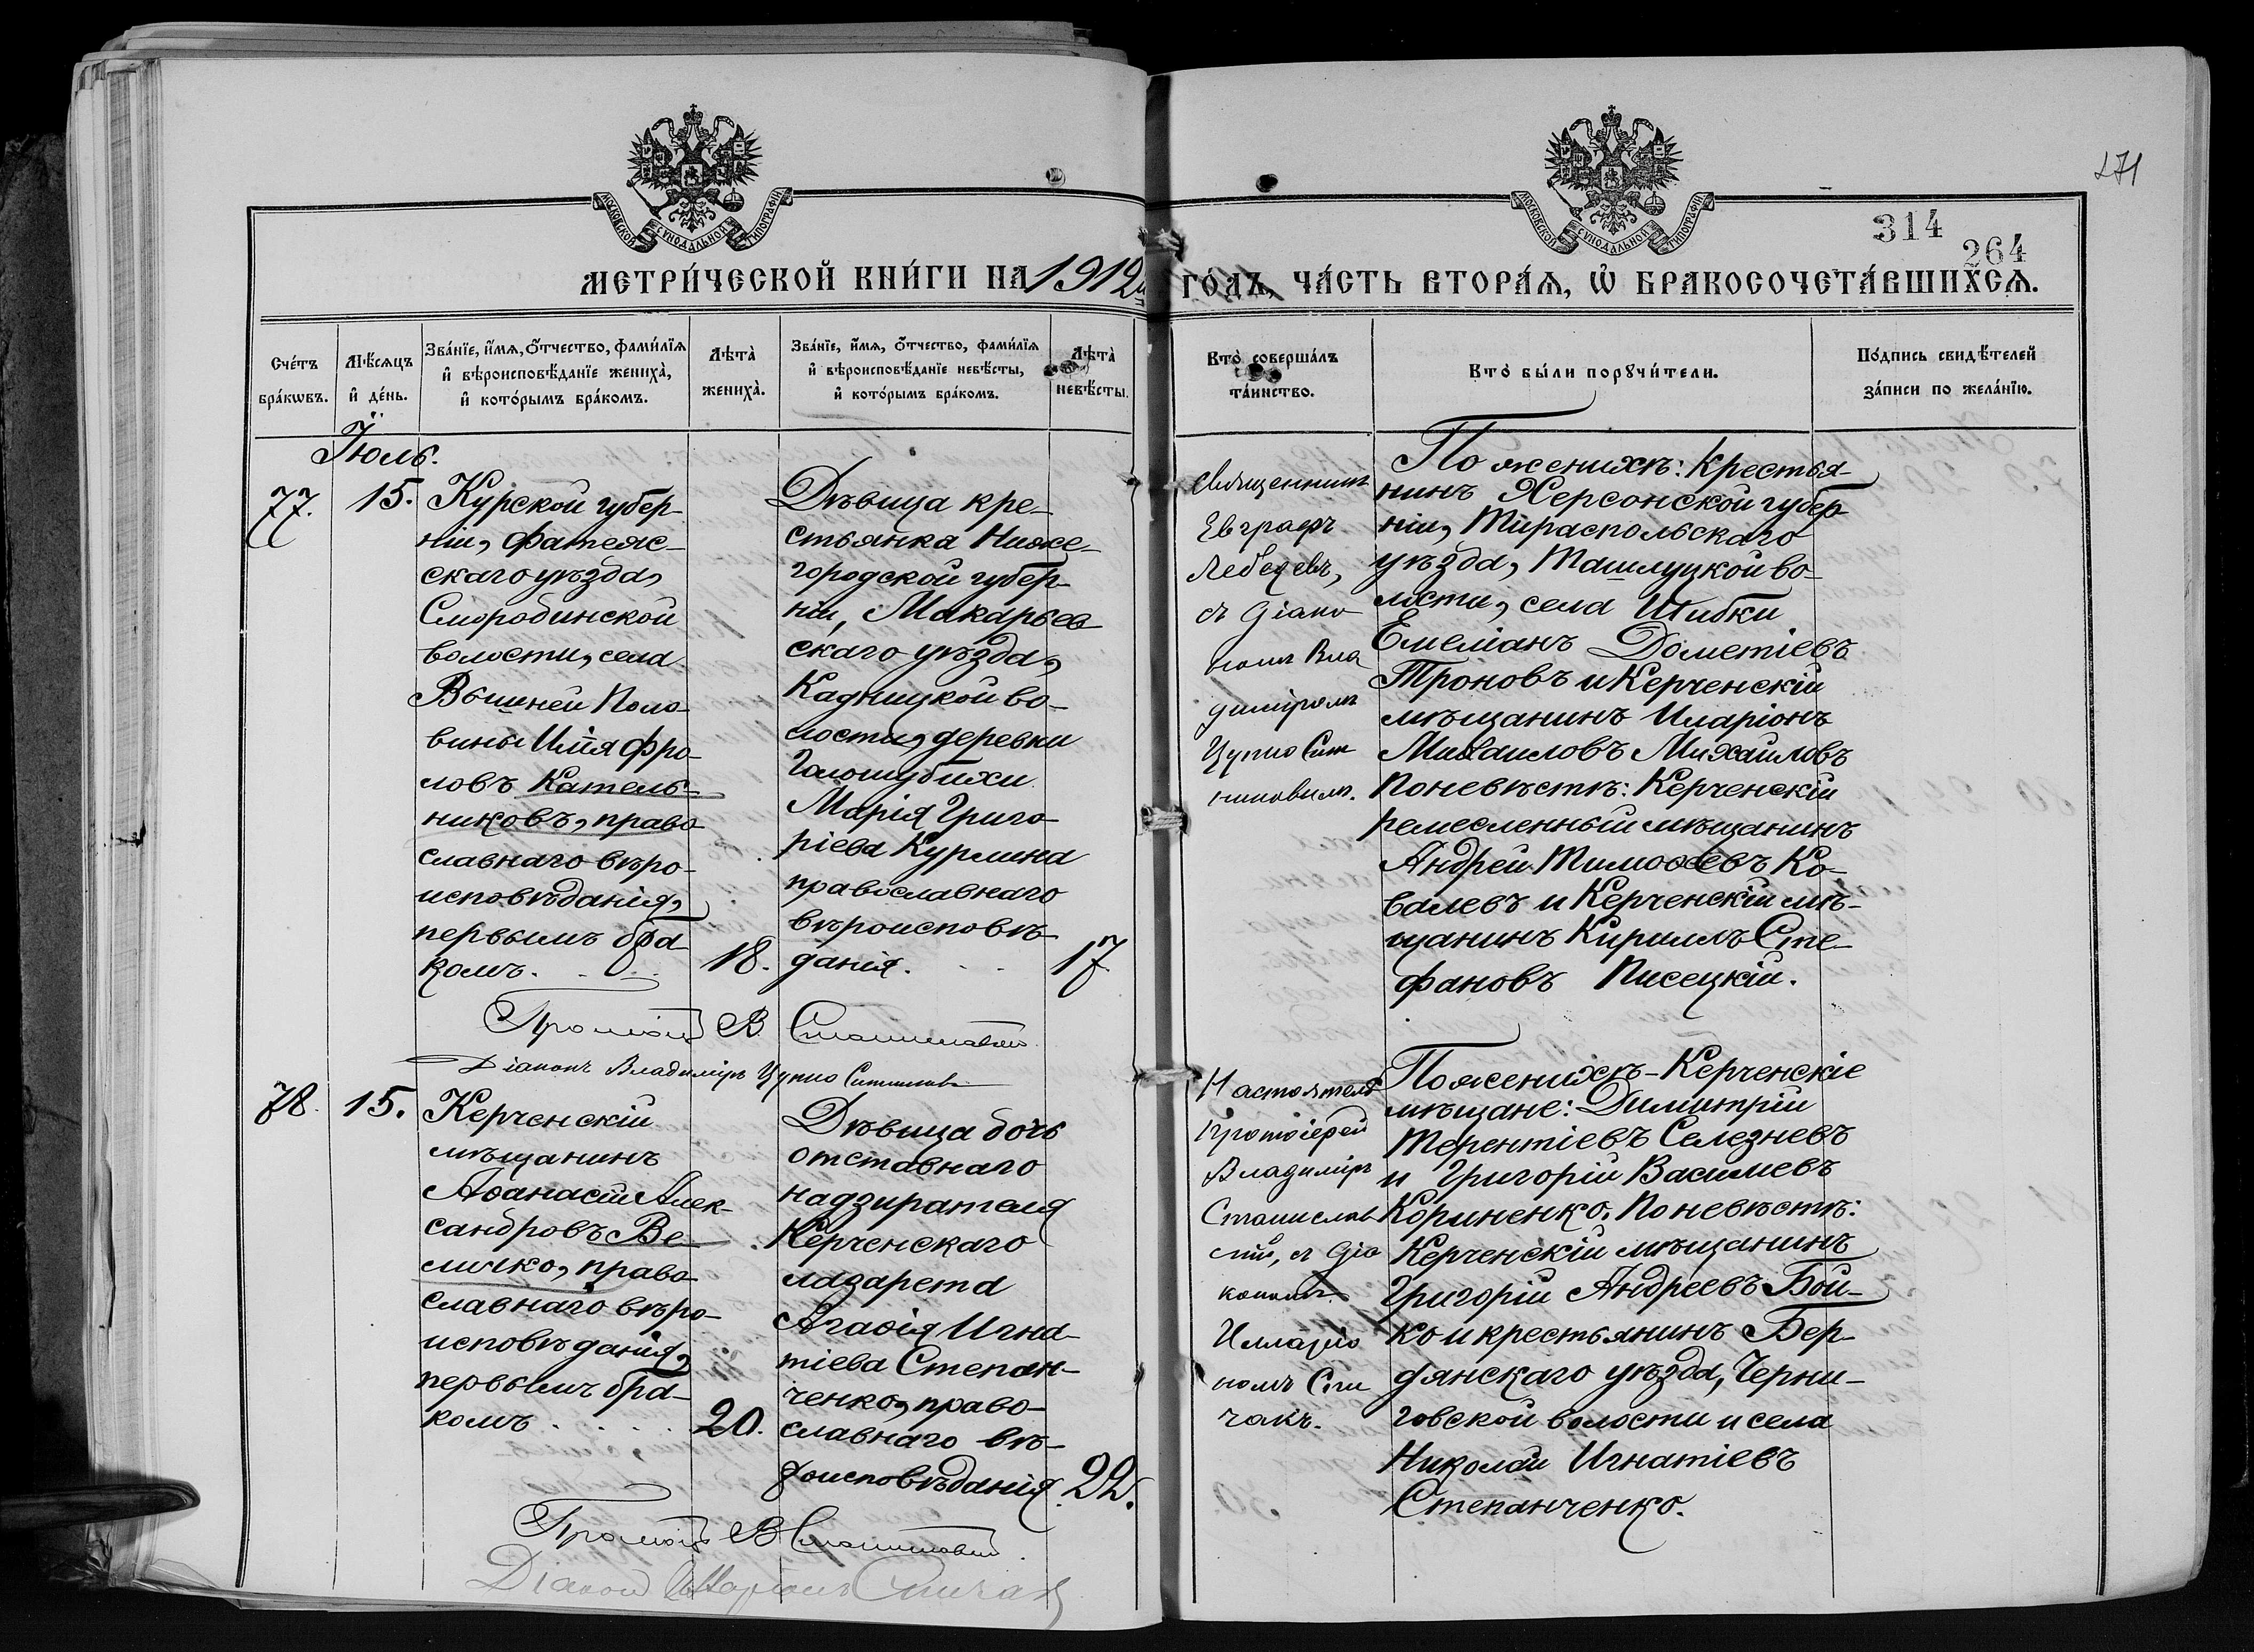 271
314
264
МОСКОВСКОЙ СѴНОДАЛЬНОЙ ТИПОГРАФІИ
МОСКОВСКОЙ СѴНОДАЛЬНОЙ ТИПОГРАФІИ
МЕТРИ́ЧЕСКОЙ КНИ́ГИ НА 1912й ГО́ДЪ, ЧА́СТЬ ВТОРА́Ѧ, Ѡ҆ БРАКОСОЧЕТА́ВШИХСѦ.
Сче́тъ
бра́кѡвъ.
Мѣ́сѧцъ
и҆ де́нь.
Зва́нїе, и҆́мѧ, ѻ҆́тчество, фами́лїѧ
и҆ вѣроисповѣ́данїе жениха̀,
и҆ кото́рымъ бра́комъ.
Лѣта̀
жениха̀.
Зва́нїе, и҆́мѧ, ѻ҆́тчество, фами́лїѧ
и҆ вѣроисповѣ́данїе невѣ́сты,
и҆ кото́рымъ бра́комъ.
Лѣта̀
невѣ́сты.
Кто̀ соверша́лъ
та́инство.
Кто̀ бы́ли порꙋчи́тели.
По́дпись свидѣ́телей
за́писи по жела́нїю.
Іюль.
77.
15.
Курской губер-
ніи, Фатеж-
скаго уѣзда,
Смородинской
волости, села
Вышней Поло-
вины Илія Фро-
ловъ Катель-
никовъ, право-
славнаго вѣро-
исповѣданія,
первымъ бра-
комъ.
18.
Дѣвица кре-
стьянка Ниже-
городской губер-
ніи, Макарьев-
скаго уѣзда,
Кадницкой во-
лости, деревни
Голошубихи
Марія Григо-
ріева Курмина
православнаго
вѣроисповѣ-
данія.
17
Священникъ
Евграфъ
Лебедевъ,
съ діако-
номъ Вла
диміромъ
Цупио Сит
никовымъ.
По женихѣ: Крестья-
нинъ Херсонской губер-
ніи, Тираспольскаго
уѣзда, Ташлуцкой во-
лости, села Шибки
Емеліанъ Дометіевъ
Троновъ и Керченскій
мѣщанинъ Иларіонъ
Михаиловъ Михаиловъ
По невѣстѣ: Керченскій
ремесленный мѣщанинъ
Андрей Тимоѳеевъ Ко-
валевъ и Керченскій мѣ-
щанинъ Кириллъ Сте-
фановъ Писецкій.
В.
Діаконъ Владиміръ Цупио Ситников
78.
15.
Керченскій
мѣщанинъ
Аѳанасій Алек-
сандровъ Ве-
личко, право-
славнаго вѣро-
исповѣданія,
первымъ бра-
комъ
20.
Дѣвица дочь
отставнаго
надзирателя
Керченскаго
лазарета
Агаѳія Игна-
тіева Степан-
ченко, право-
славнаго вѣ-
роисповѣданія.
22.
Настоятель
Протоіерей
Владиміръ
Станислав
скій, съ діа
кономъ
Илларіо
номъ Спи
чакъ.
По женихѣ - Керченскіе
мѣщане: Димитрій
Терентіевъ Селезневъ
и Григорій Василіевъ
Кориненко. По невѣстѣ:
Керченскій мѣщанинъ
Григорій Андреевъ Бой-
ко и крестьянинъ Бер-
дянскаго уѣзда, Черни-
говской волости и села
Николай Игнатіевъ
Степанченко.
В
Діаконъ Илларіонъ Спичак